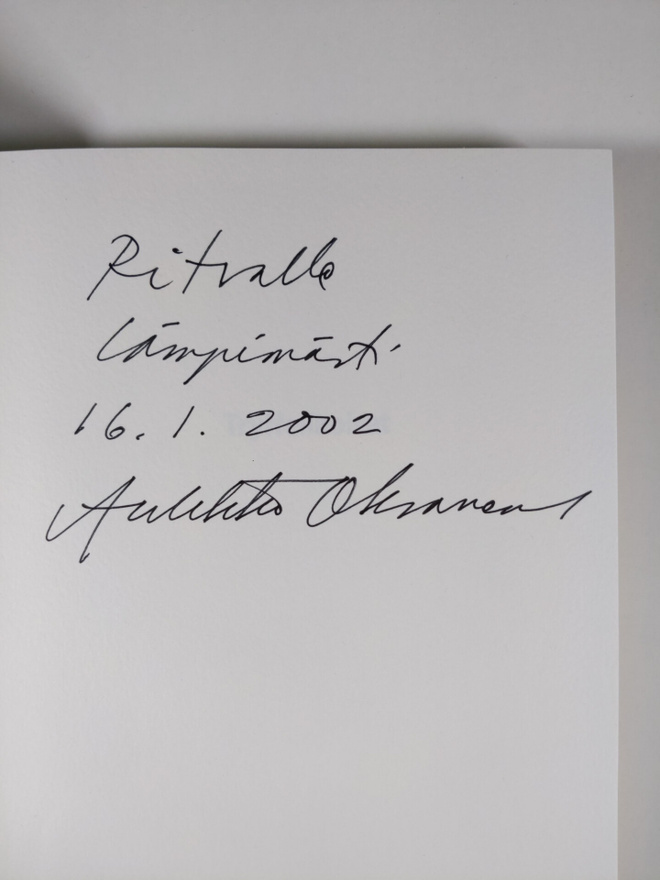 Ritvalle
Lämpimästi
16.1.2002
Aulikki Oksanen